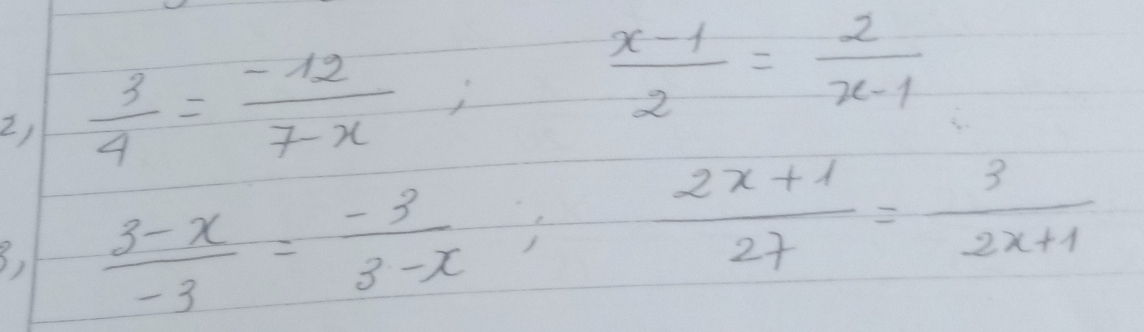 2, 3/4 = -12/(7-x) ; (x-1)/2 = 2/(x-1)
3, (3-x)/-3 = -3/(3-x) ; (2x+1)/27 = 3/(2x+1)